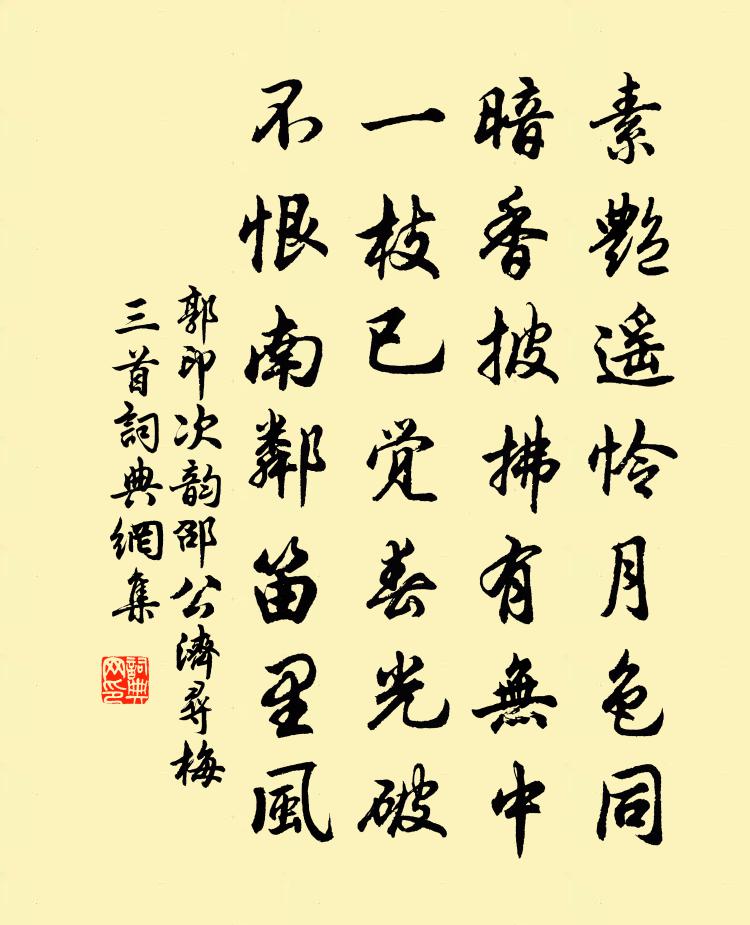 素艷遥怜月色同
暗香披拂有無中
一枝已觉春光破
不恨南鄰笛里風
郭印次韵邵公濟尋梅
三首詞典網集
詞典網印